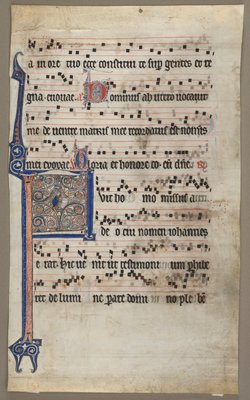 in ore tuo ecce constitui te sup gentes et re
gna. euouae. Dominus ab utero uocauit
me de uentre matris mee recordatus est nominis
mei euouae. Gloria et honore co
Fuit ho mo missus a
de o cui nomen iohannes
e rat. hic ue nit ut testimoni um phibe
ret de lumi ne pare domi no ple be